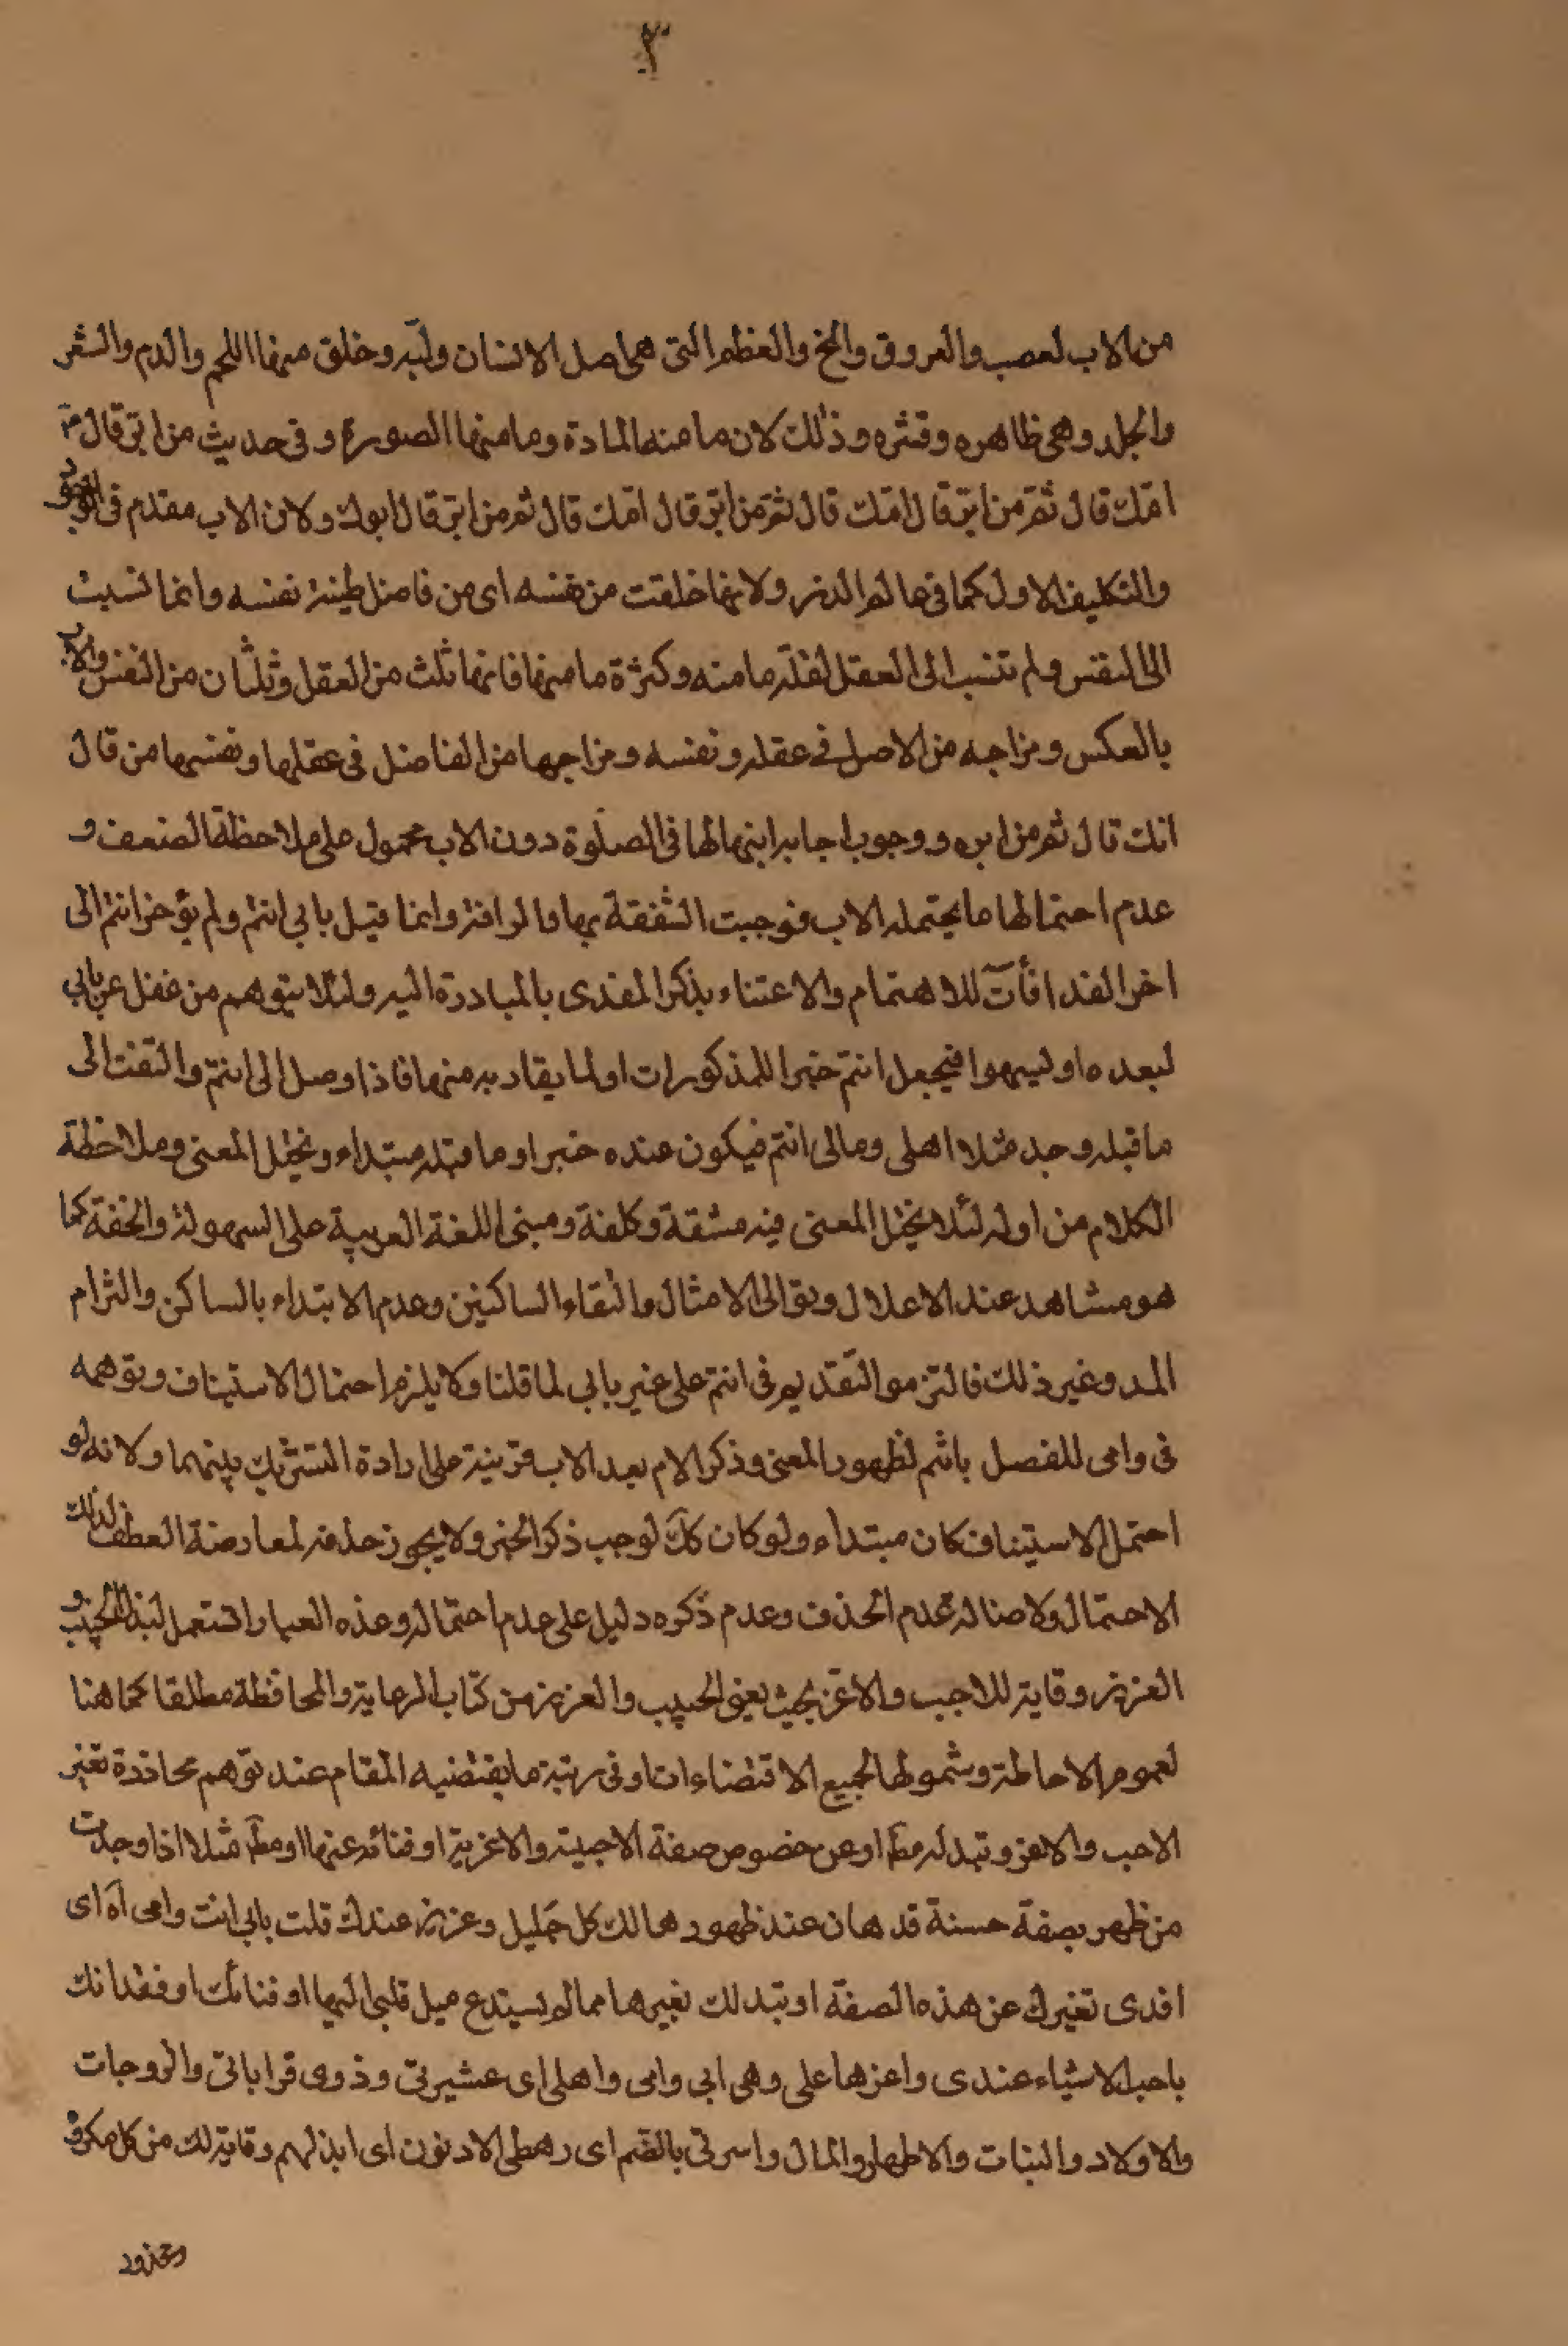 ٣
من الاب لعصب والعروق والمخ والعظم التى هى اصل الانسان ولبّه وخلق منها اللحم والدم والشعر
والجلد وهى ظاهره وقشره وذلك لان ما منه المادة وما منها الصورة وفى حديث من ابرّ قال
امّك قال ثمّ من ابرّ قال امّك قال ثمّ من ابرّ قال امّك قال ثم من ابرّ قال ابوك ولان الاب مقدم فى الوجود
والتكليف الاول كما فى عالم الذر ولانها خلقت من نفسه اى من فاضل طينة نفسه وانما نسبت
الى النفس ولم تنسب الى العقل لقلة ما منه وكثرة ما منها فانها ثلث من العقل وثلثان من النفس والاب
بالعكس ومزاجه من الاصل فى عقله ونفسه ومزاجها من الفاضل فى عقلها ونفسها من قال
انك قال ثم من ابره ووجوب اجابة ابنها لها فى الصلوة دون الاب محمول على ملاحظة الضعف و
عدم احتمالها ما يحتمله الاب فوجبت الشفقة بها والرافة وانما قيل بابى انتم ولم يؤخر انتم الى
اخر الفدا فأت للاهتمام والاعتناء بذكر المفدى بالمبادرة اليه ولئلا يتوهم من غفل عن بابى
لبعده او ليسهوا فيجعل انتم خبرا للمذكورات او لما يقاد به منها فاذا وصل الى انتم والتفت الى
ما قبله وجد مثلا اهلى ومالى انتم فيكون عنده خبرا وما قبله مبتداء ويختل المعنى وملاحظة
الكلام من اوله لئلا يختل المعنى فيه مشقة وكلفة ومبنى اللغة العربية على السهولة والخفة كما
هو مشاهد عند الاعلال وتوالى الامثال والتقاء الساكنين وعدم الابتداء بالساكن والتزام
المد وغير ذلك فالتزموا التقديم فى انتم على غير بابى لما قلنا ولا يلزم احتمال الاستيناف وتوهمه
فى وامى للفصل بانتم لظهور المعنى وذكر الام بعد الاب قرينة على ارادة التشريك بينهما ولانه لو
احتمل الاستيناف كان مبتداء ولو كان كك لوجب ذكر الخبر ولا يجوز حذفه لمعارضة العطف لذلك
الاحتمال ولاصالة عدم الحذف وعدم ذكره دليل على عدم احتماله وهذه العبارة تستعمل لبذل الحبيب و
العزيز وقاية للاحب والاعز بحيث يعنى الحبيب والعزيز من كتاب الرعاية والمحافظة مطلقا كما هنا
لعموم الاحاطة وشمولها لجميع الاقتضاءات او فى رتبة ما يقتضيه المقام عند توهم محاذرة تغير
الاحب والاعز وتبدله مط او عن خصوص صفة الاحبية والاعزية او فنائه عنها او مط مثلا اذا وجدت
من ظهر بصفة حسنة قد هان عند ظهور ها لك كل جميل وعزيز عندك قلت بابى انت وامى آه اى
افدى تغيرك عن هذه الصفة او تبدلك بغيرها مما لم يستدع ميل قلبى اليها او فنائك او فقدانك
باحب الاشياء عندى واعزها على وهى ابى وامى واهلى اى عشيرتى وذوى قراباتى والزوجات
والاولاد والبنات والاطهار والمال واسرتى بالضم اى رهطى الادنون اى ابذلهم وقاية لك من كل مكروه
ومحذور